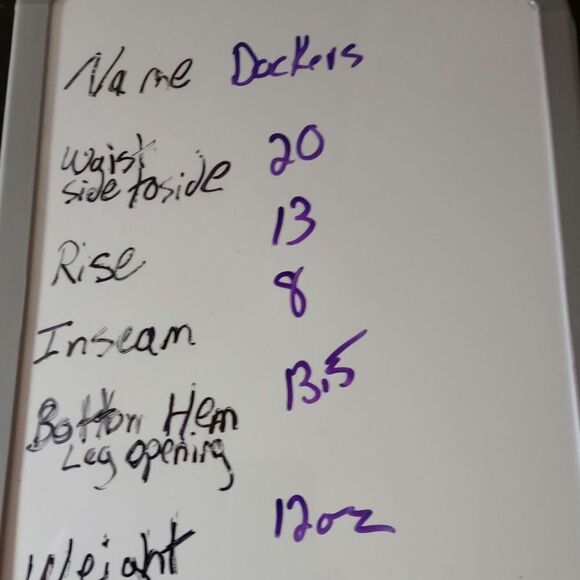 Name Dockers
Waist 20
side to side
Rise 13
Inseam 8
Bottom Hem 13.5
Leg opening
Weight 12oz